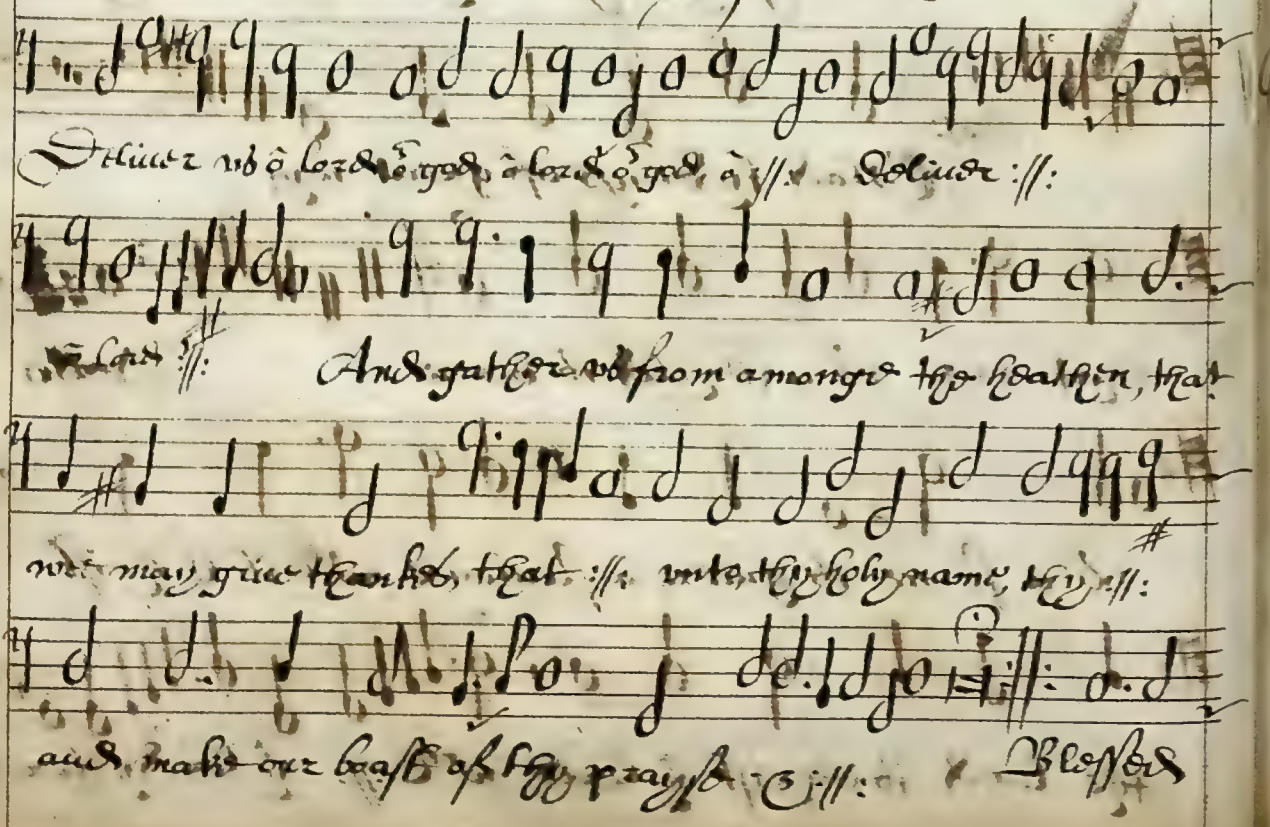 Deliuer vs ô lord ô god, ô lord ô god, ô :||: deliuer :||:
ô lord :||: And gather vs from amonge the heathen, that
wee may giue thankes, that :||: vnto thy holy name, thy :||:
and make our boast of thy prayse &c :||: Blessed